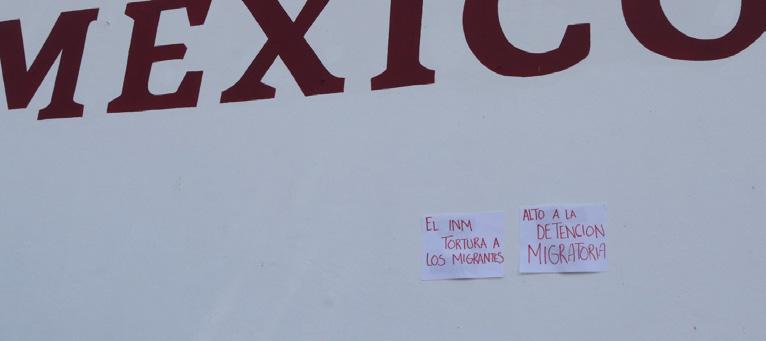 MEXICO
EL INM
TORTURA A
LOS MIGRANTES
ALTO A LA
DETENCION
MIGRATORIA